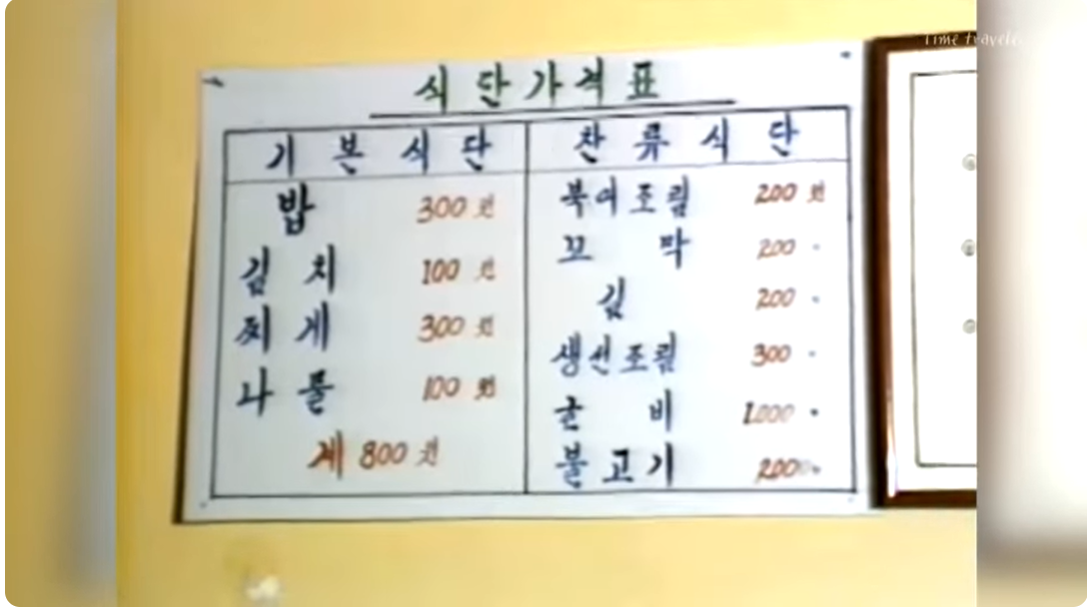 Time travele
식단가격표
기본식단
밥 300원
김치 100원
찌게 300원
나물 100원
계 800원
찬류식단
북어조림 200원
꼬막 200 〃
김 200 〃
생선조림 300 〃
굴비 1,000 〃
불고기 2000 〃